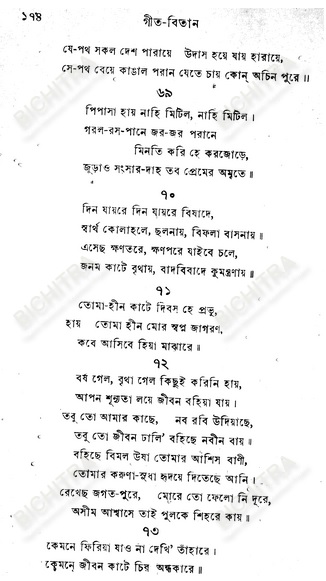 ১৭৪
গীত-বিতান
যে-পথ সকল দেশ পারায়ে উদাস হয়ে যায় হারায়ে,
সে-পথ বেয়ে কাঙাল পরান যেতে চায় কোন্ অচিন পুরে ॥
৬৯
পিপাসা হায় নাহি মিটিল, নাহি মিটিল।
গরল-রস-পানে জর-জর পরানে
মিনতি করি হে করজোড়ে,
জুড়াও সংসার-দাহ তব প্রেমের অমৃতে ॥
৭০
দিন যায়রে দিন যায়রে বিষাদে,
স্বার্থ কোলাহলে, ছলনায়, বিফলা বাসনায় ॥
এসেছ ক্ষণতরে, ক্ষণপরে যাইবে চলে,
জনম কাটে বৃথায়, বাদবিবাদে কুমন্ত্রণায় ॥
৭১
তোমা-হীন কাটে দিবস হে প্রভু,
হায় তোমা হীন মোর স্বপ্ন জাগরণ,
কবে আসিবে হিয়া মাঝারে ॥
৭২
বর্ষ গেল, বৃথা গেল কিছুই করিনি হায়,
আপন শূন্যতা লয়ে জীবন বহিয়া যায়।
তবু তো আমার কাছে, নব রবি উদিয়াছে,
তবু তো জীবন ঢালি' বহিছে নবীন বায় ॥
বহিছে বিমল উষা তোমার আশিস বাণী,
তোমার করুণা-সুধা হৃদয়ে দিতেছে আনি।
রেখেছ জগত-পুরে, মোরে তো ফেলো নি দূরে,
অসীম আশ্বাসে তাই পুলকে শিহরে কায় ॥
৭৩
কেমনে ফিরিয়া যাও না দেখি' তাঁহারে।
কেমনে জীবন কাটে চির অন্ধকারে ॥
BICHITRA
BICHITRA
BICHITRA
BICHITRA
BICHITRA
BICHITRA